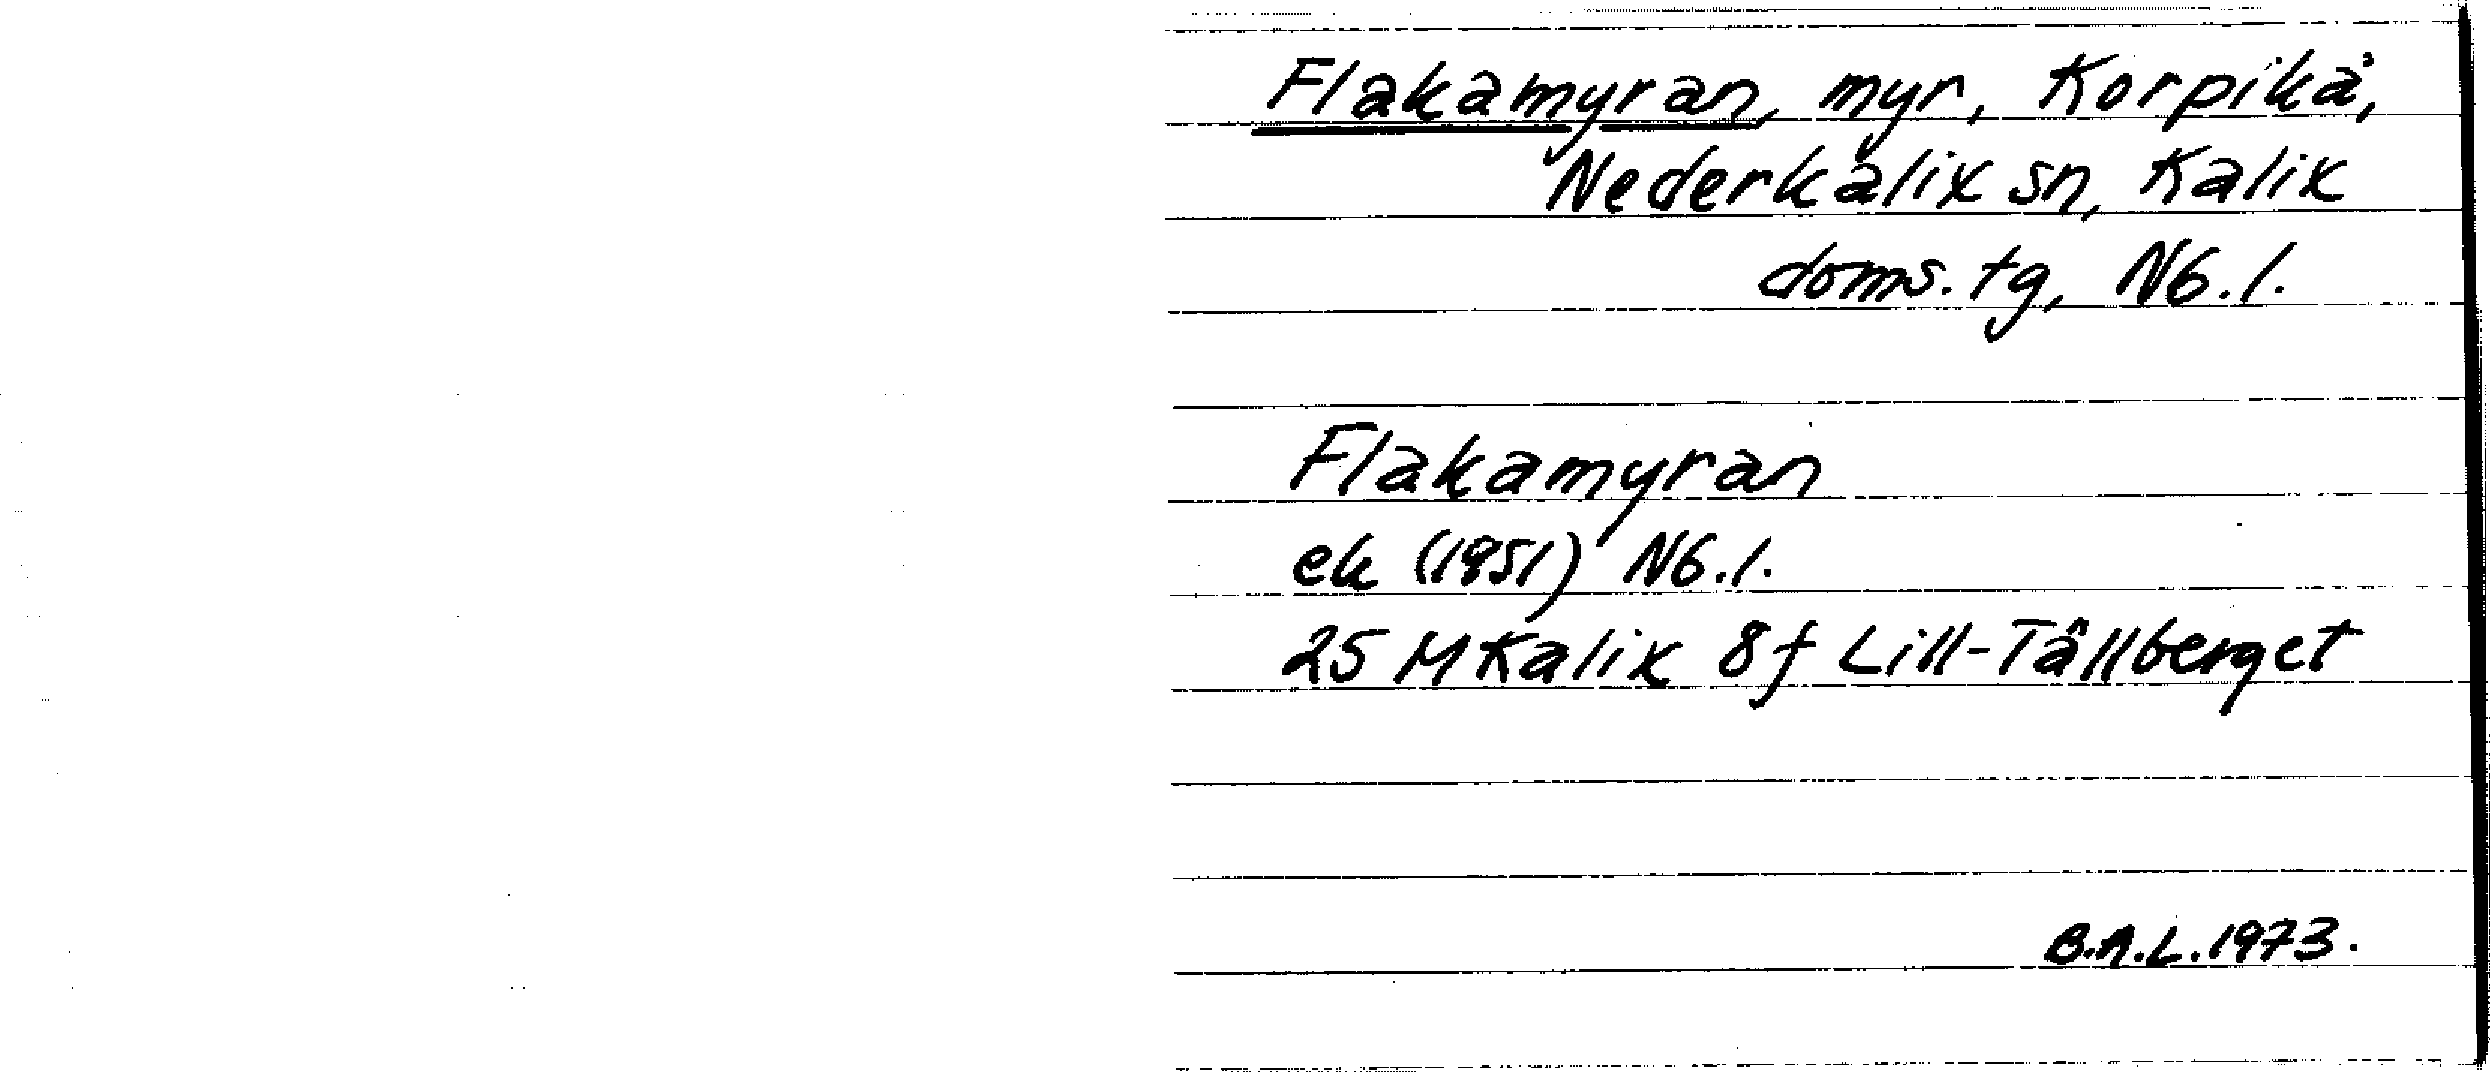 Flakamyran, myr, Korpikå,
Nederkalix sn, Kalix
doms.tg, Nb.l.
Flakamyran
ek (1951) Nb.l.
25 M Kalix 8f Lill-Tållberget
B.A.L. 1973.